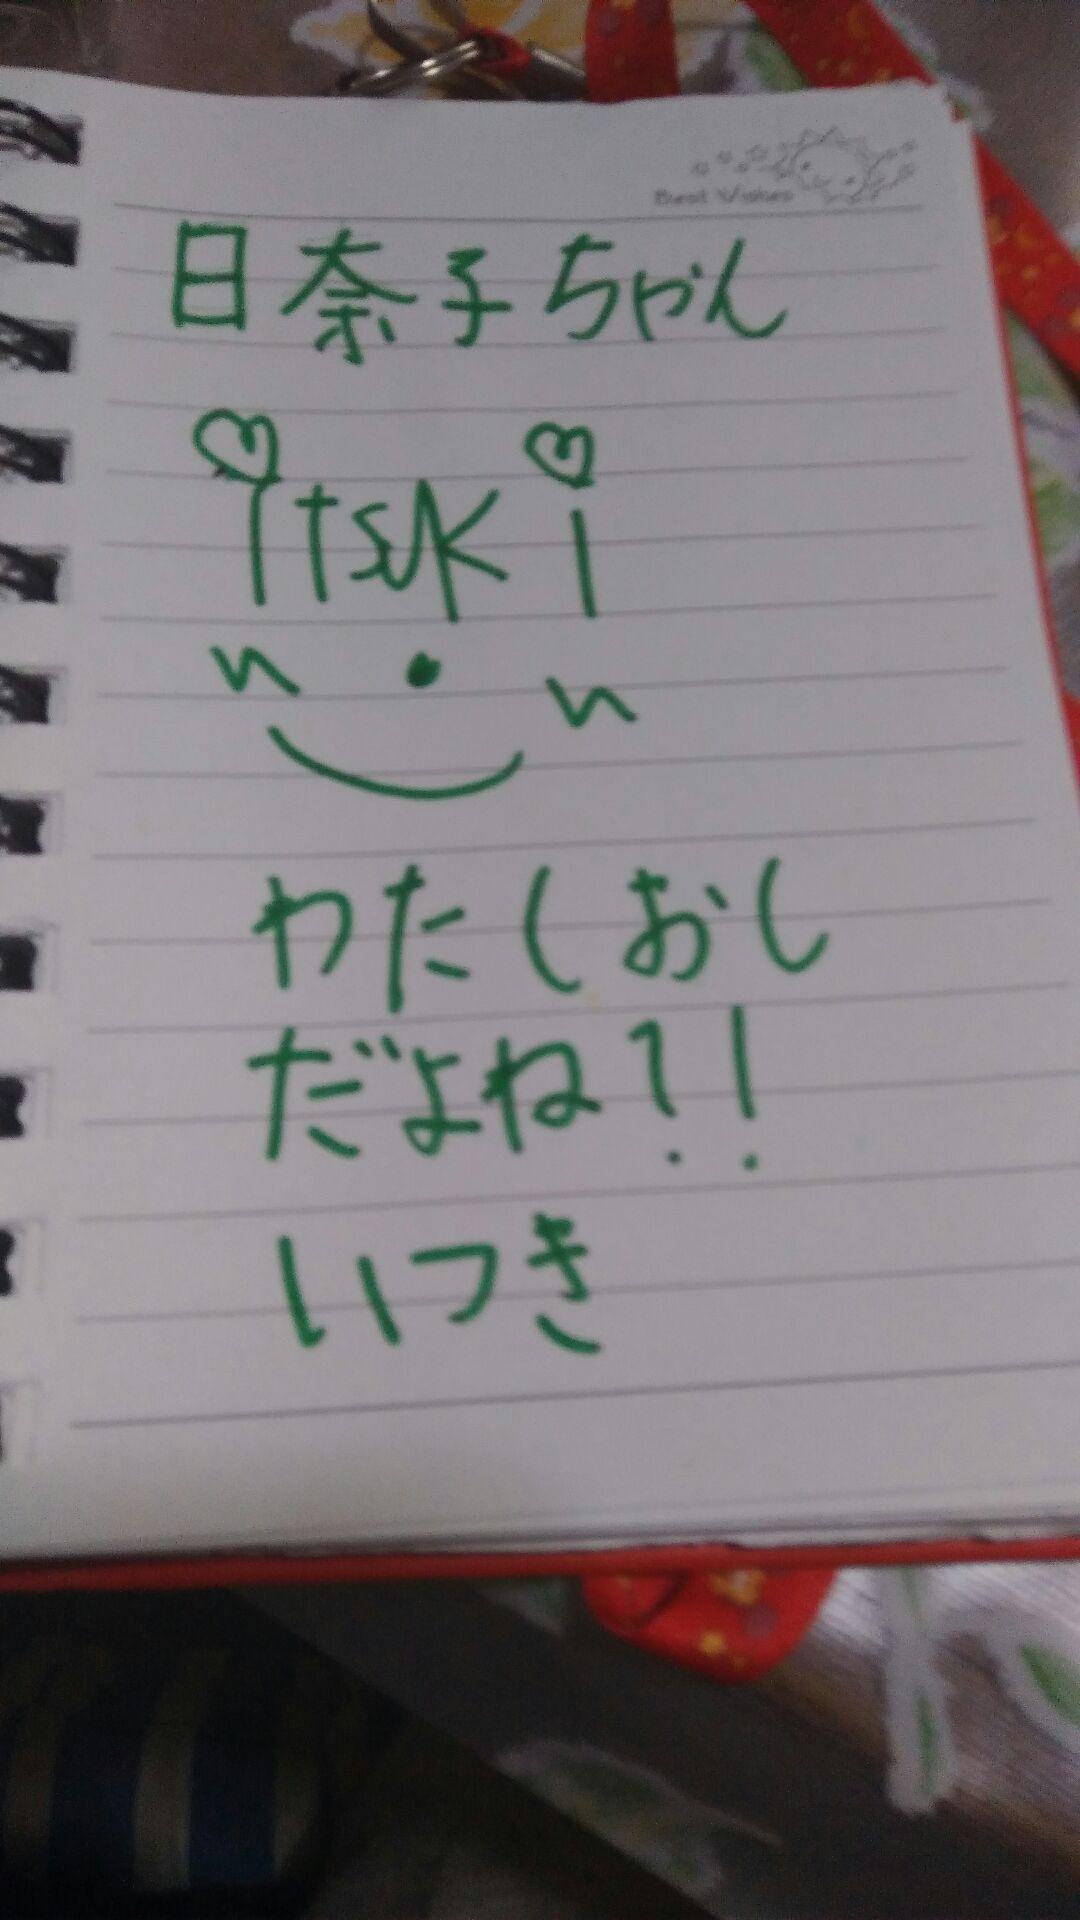 Best Wishes
日奈子ちゃん
itsuki
わたしおし
だよね?!
いつき